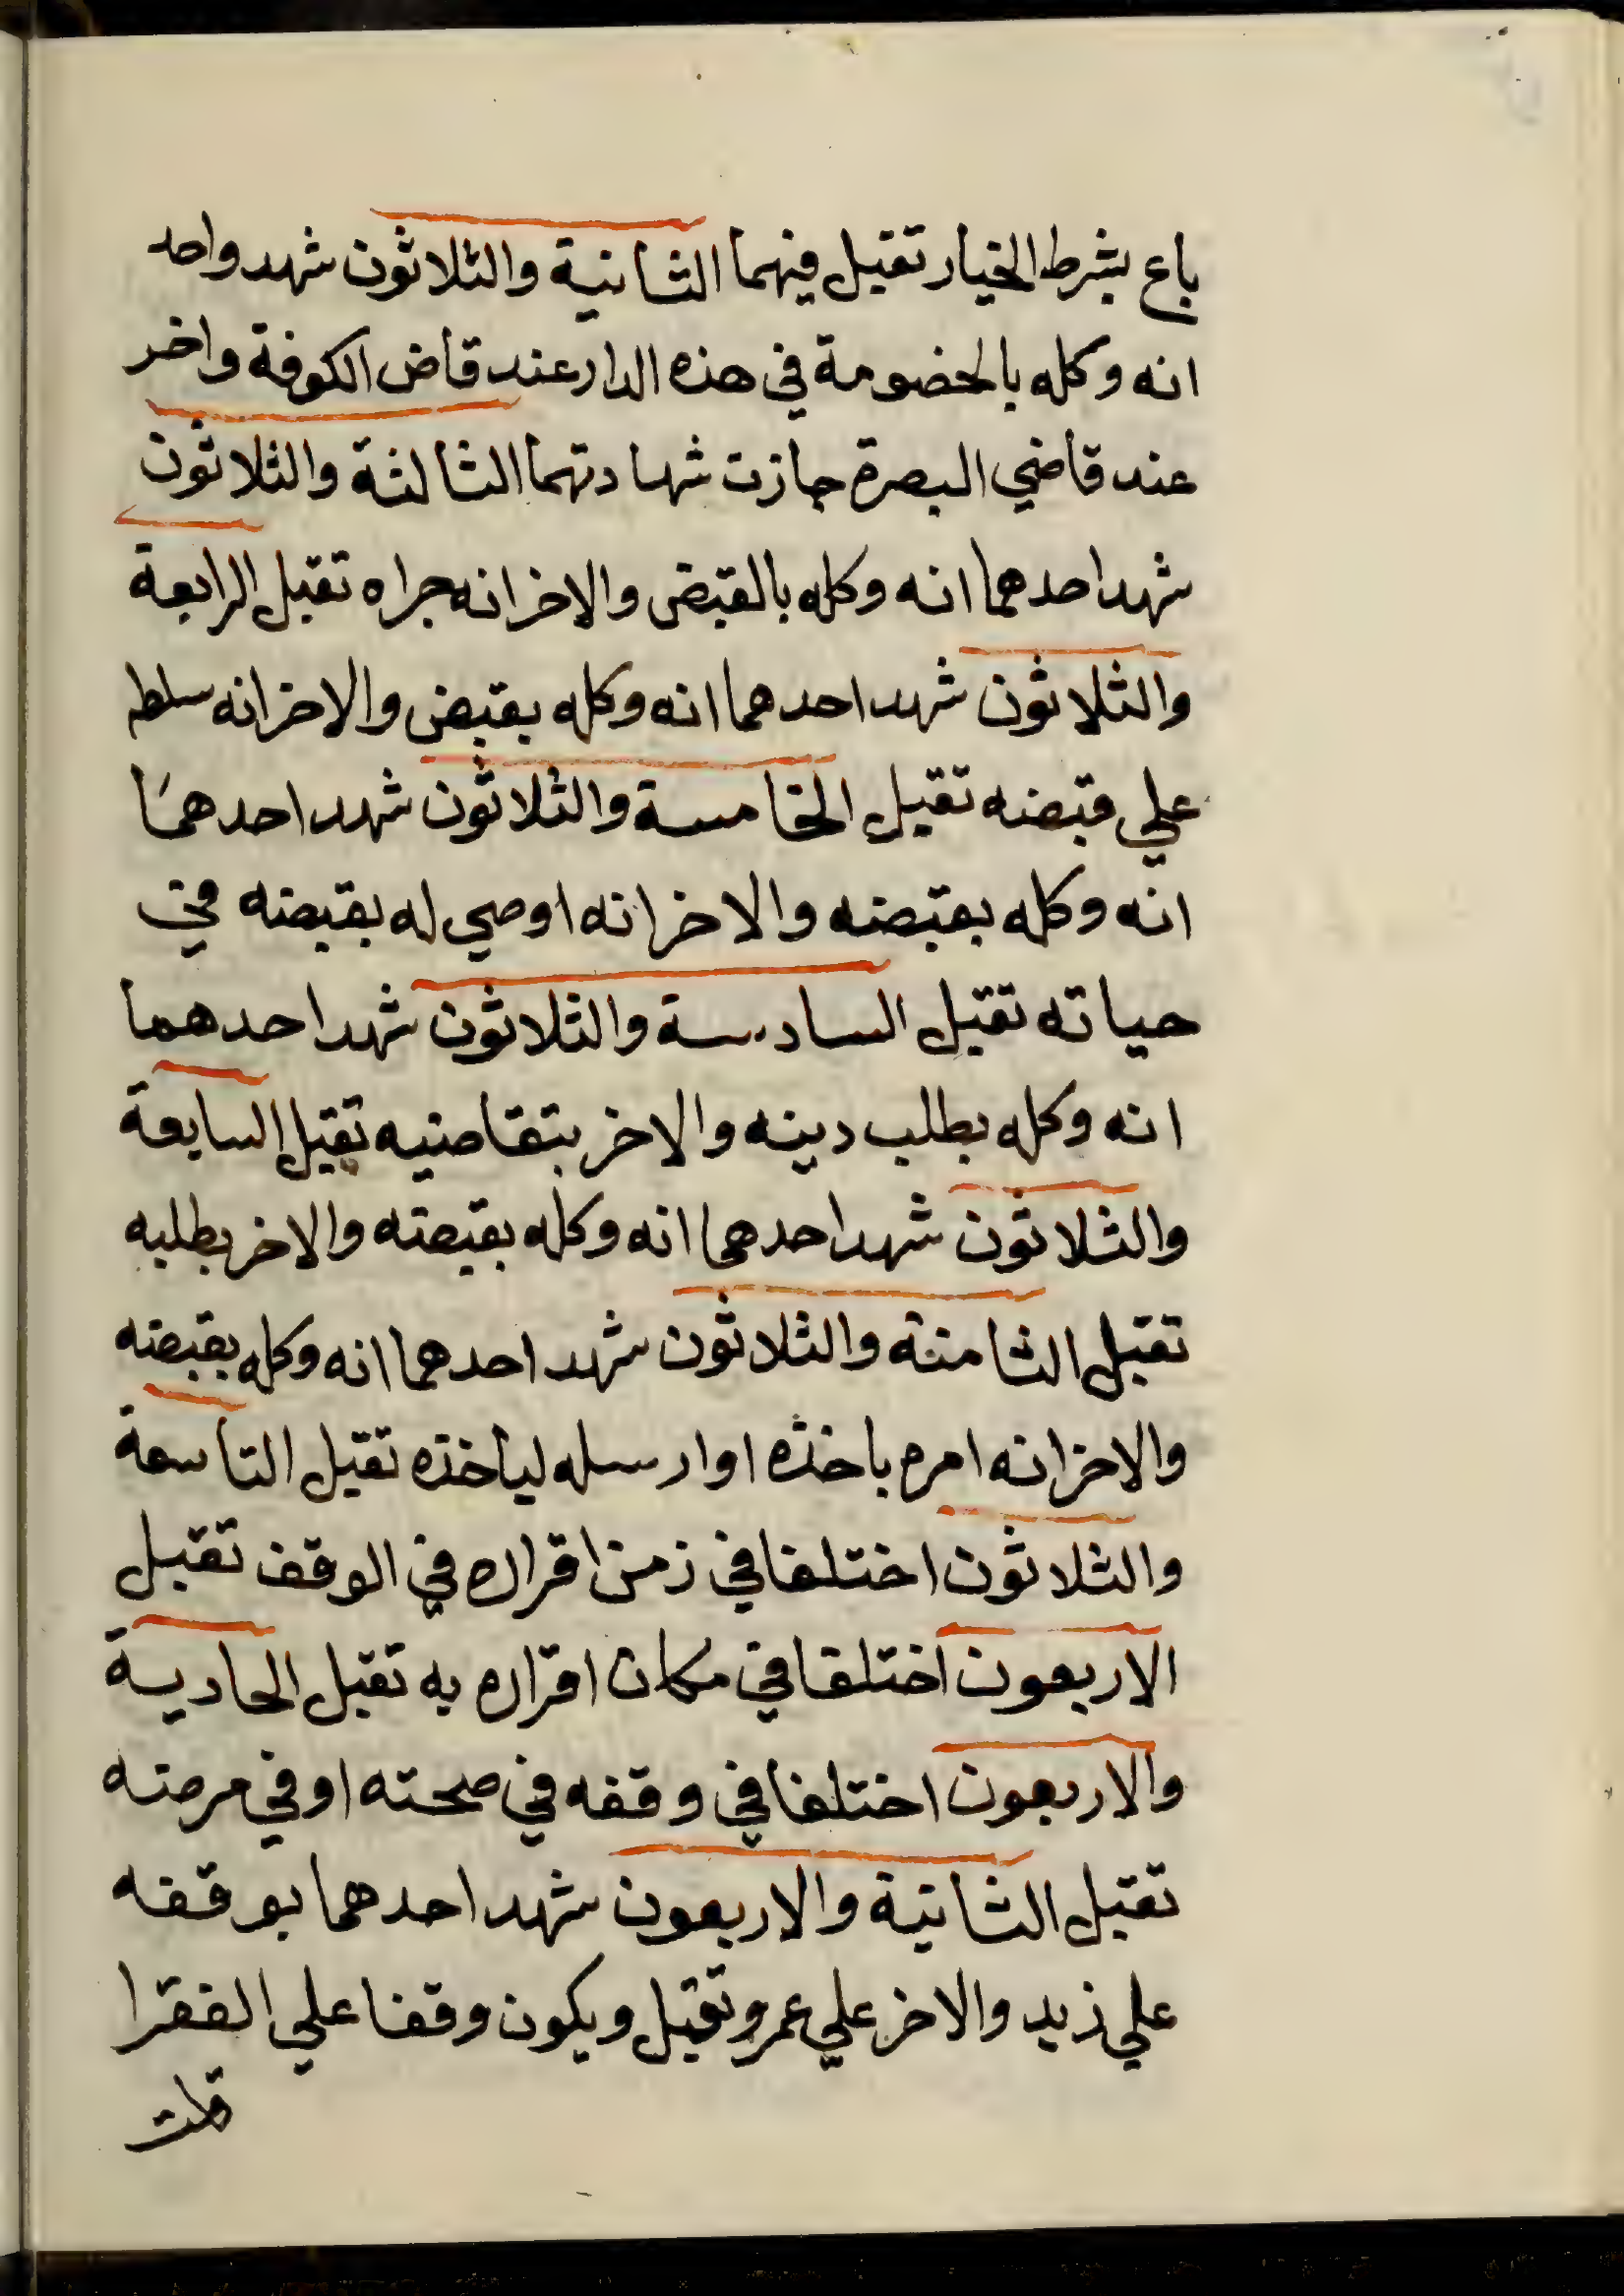 باع بشرط الخيار تقبل فيهما الثانية والثلاثون شهد واحد
انه وكله بالخصومة في هذه الدار عند قاض الكوفة واخر
عند قاضي البصرة جازت شهادتهما الثالثة والثلاثون
شهد احدهما انه وكله بالقبض والاخر انه جراه تقبل الرابعة
والثلاثون شهد احدهما انه وكله بقبض والاخر انه سلطه
علي قبضه تقبل الخامسة والثلاثون شهد احدهما
انه وكله بقبضه والاخر انه اوصي له بقبضه في
حياته تقبل السادسة والثلاثون شهد احدهما
انه وكله بطلب دينه والاخر بتقاضيه تقبل السابعة
والثلاثون شهد احدهما انه وكله بقبضه والاخر بطلبه
تقبل الثامنة والثلاثون شهد احدهما انه وكله بقبضه
والاخر انه امره باخذه او ارسله لياخذه تقبل التاسعة
والثلاثون اختلفا في زمن اقراره في الوقف تقبل
الاربعون اختلفا في مكان اقراره به تقبل الحادية
والاربعون اختلفا في وقفه في صحته او في مرضه
تقبل الثانية والاربعون شهد احدهما بوقفه
علي زيد والاخر علي عمرو تقبل ويكون وقفا علي الفقرا
قلت